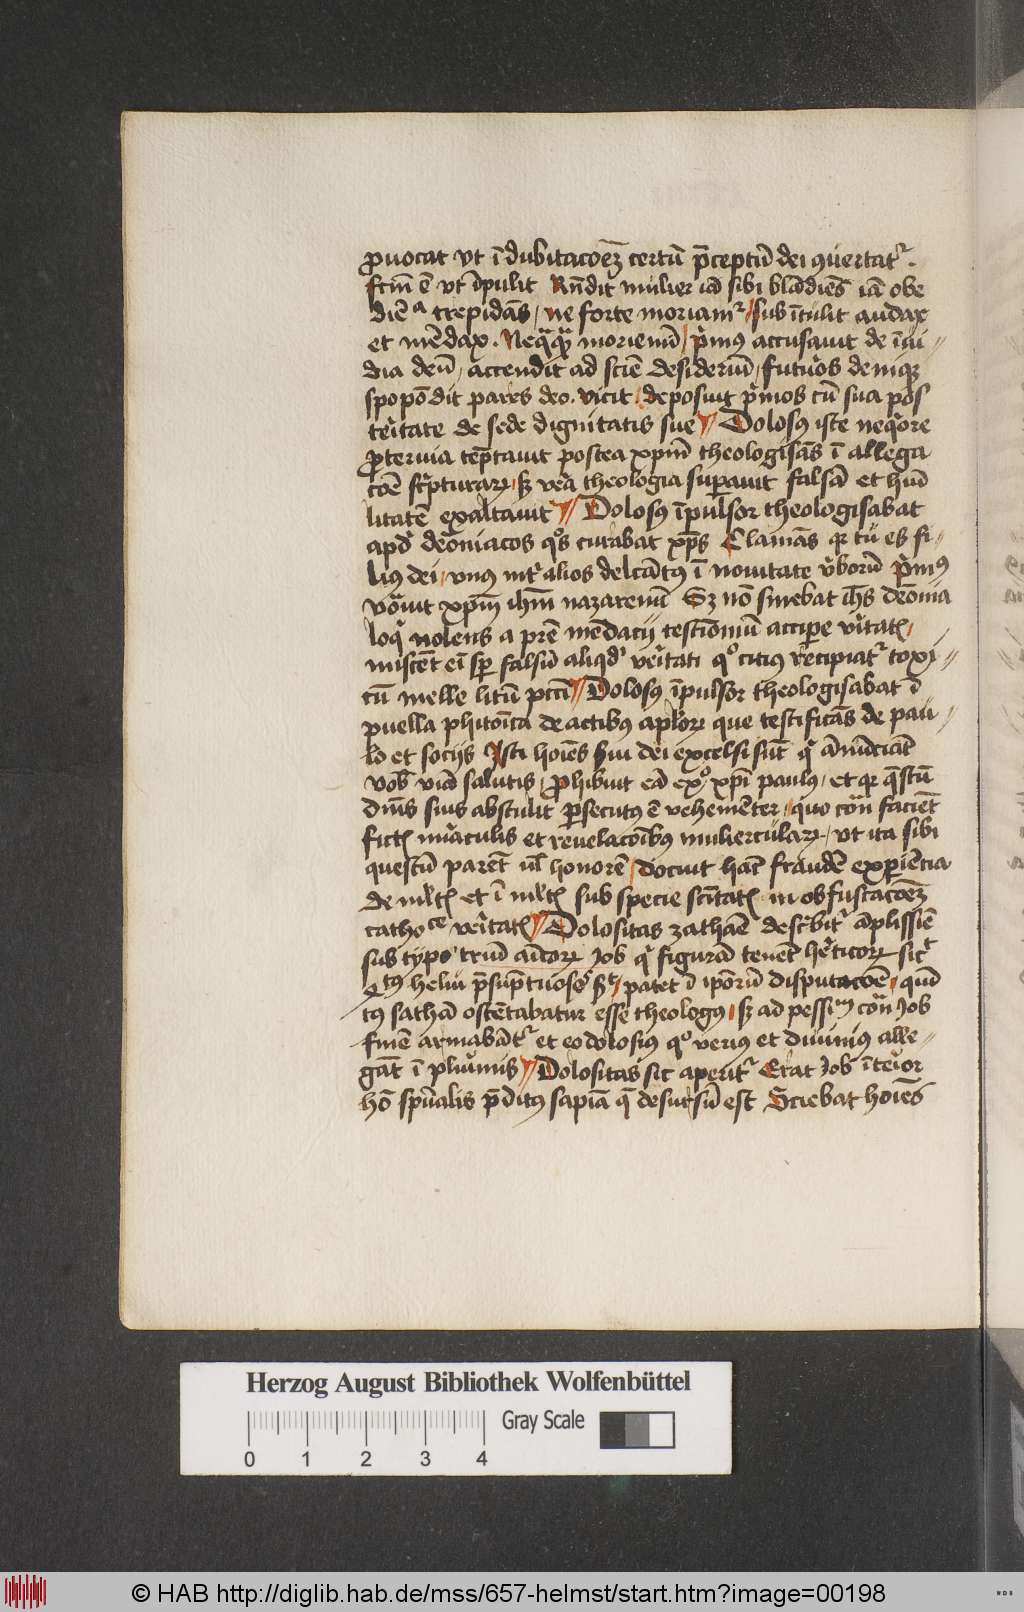 ꝓuocat vt ī dubitacōeꝫ certū p̄ceptū dei ꝯuertatᷣ .
ē vt īpulit Rn̄dit mulier iā sibi blādiēs iā obe
trepidās / ne forte moriamᷣ / sub ītulit audax
et mēdax . Neq̄q̄ moriemī / pͥmꝰ accusauit de īui⸗
dia deū / accendit ad sciē desideriū / futuros deniqꝫ
spopōdit pares deo . vicit / deposuit pͥmos cū sua pos
teritate de sede dignitatis sue Dolosꝰ iste neqͥore
ꝓteruia tēptauit postea xpm̄ theologisās ī allega
cōe scͥpturaꝝ / sꝫ vera theologia suꝑauit falsā et hūi
litatē exaltauit Dolosꝰ īpulsor theologisabat
apd̓ demōiacos qͦs curabat xp̄s Clamās qꝛ tu es fi⸗
liꝰ dei / vnꝰ int̓ alios delcātꝰ ī nouitate v̓boꝝ pͥmꝰ
vocauit xpm̄ ihm̄ nazarenū Sꝫ nō sinebat ih̄s demōia
loqͥ nolens a pr̄e mēdacij testimoniū accipe v̓itatꝭ /
miscet ei sꝑ falsū aliqd̓ veritati qͦ citiꝰ recipiatᷣ toxi⸗
cū melle litū Dolosꝰ īpulsor theologisabat ī
puella phitonica de actibꝰ aplōꝝ que testificās de pau⸗
lo et socijs Isti hoīes ẜui dei excelsi sūt qͥ ānūciāt
vob̄ viā salutis / ꝓhibuit eā xp̄i paulꝰ / et qꝛ q̄stū
dn̄is suis abstulit ꝑsecutꝰ ē vehemēter / quo cōtra faciēt
fictꝭ miraculis et reuelacōibꝰ muliercularꝝ / vt ita sibi
questū paret vl̓ honorē / docuit hāc fraudē exꝑiencia
de ml̓tꝭ et ī ml̓tꝭ sub specie scītatꝭ in obfuscacōeꝫ
cathoᶜᵉ veritatꝭ Dolositas zathae descͥbitᷣ āplissīe
sub typo triū amicoꝝ Iob qͥ figurā tenēt hereticoꝝ sic̄
heliu p̄suptuosꝰ patet ī ipōrū disputacōe / quā
tꝰ sathā ostētabatur esse theologꝰ / sꝫ ad pessimū cōtra Iob
finē armabātᷣ et eo dolosiꝰ qͦ veriꝰ et diuiniꝰ alle⸗
gāt ī plurimis Dolositas sic aperitᷣ Erat Iob īterior
hō spūalis p̄ditꝰ sapiā q̄ desursū est Sciebat hoīes
Herzog August Bibliothek Wolfenbüttel
Gray Scale
0 1 2 3 4
© HAB http://diglib.hab.de/mss/657-helmst/start.htm?image=00198